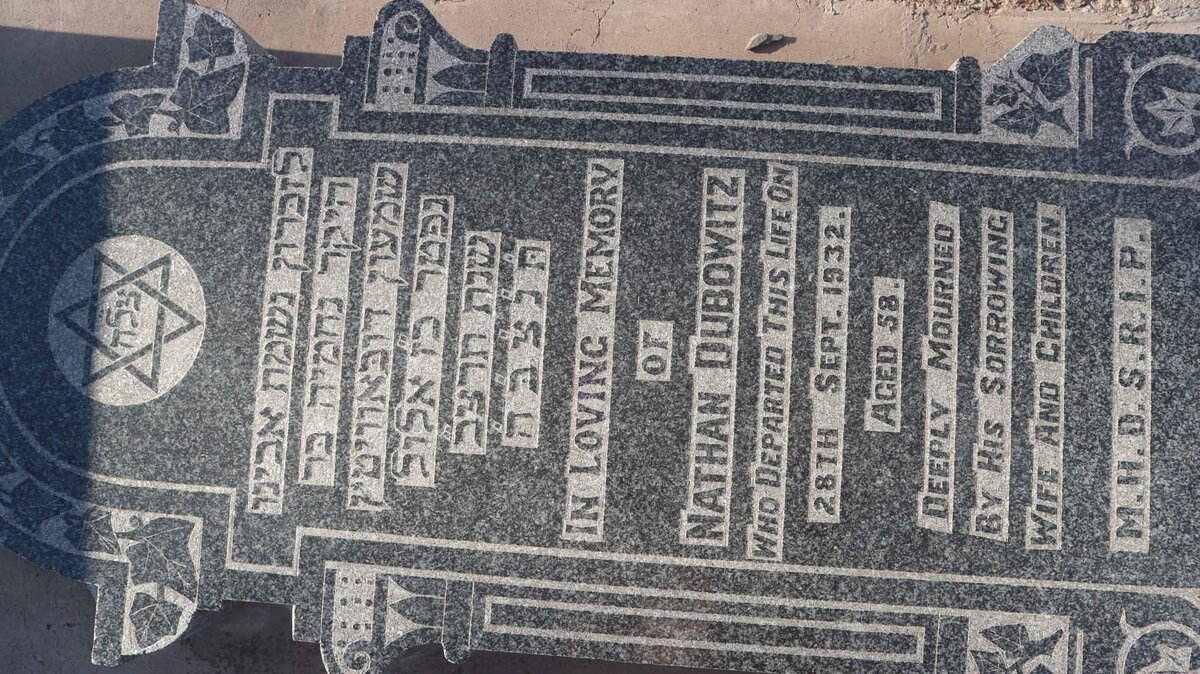 לזכרון נשמת אבינו
היקר נחמיה בר
שמעון דובאוויטץ
נפטר כ״ז אלול
שנת תרצ״ב
ת׳נ׳צ׳ב׳ה׳
IN LOVING MEMORY
OF
NATHAN DUBOWITZ
WHO DEPARTED THIS LIFE ON
28TH SEPT. 1932.
AGED 58.
DEEPLY MOURNED
BY HIS SORROWING
WIFE AND CHILDREN.
M.H.D.S.R.I.P.